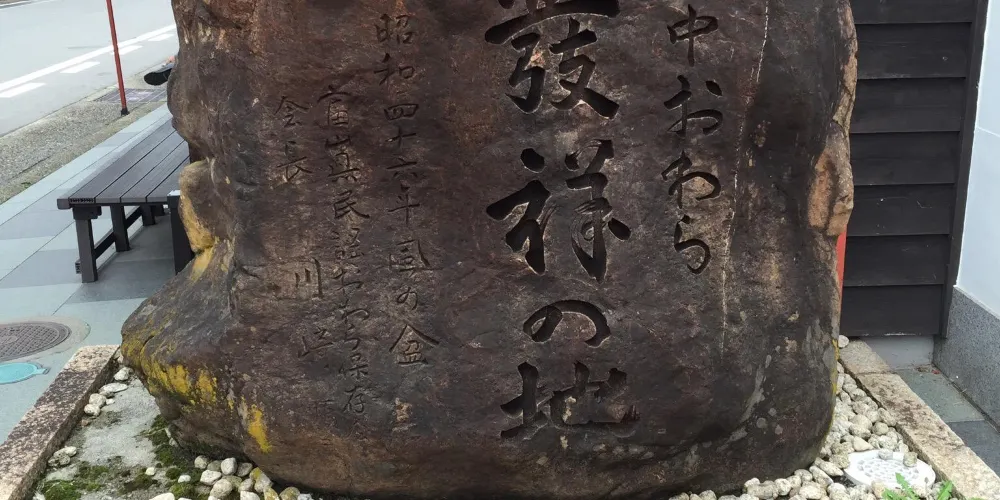 中おわら
發祥の地
昭和四十六年風の盆
富山県民謡おわら保存
会長 川